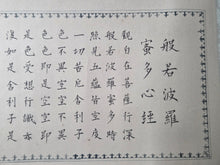 般若波羅
蜜多心經
觀自在菩薩行深
般若波羅蜜多時
照見五蘊皆空度
一切苦厄舍利子
色不異空空不異
色色即是空空即
是色受想行識亦
復如是舍利子是